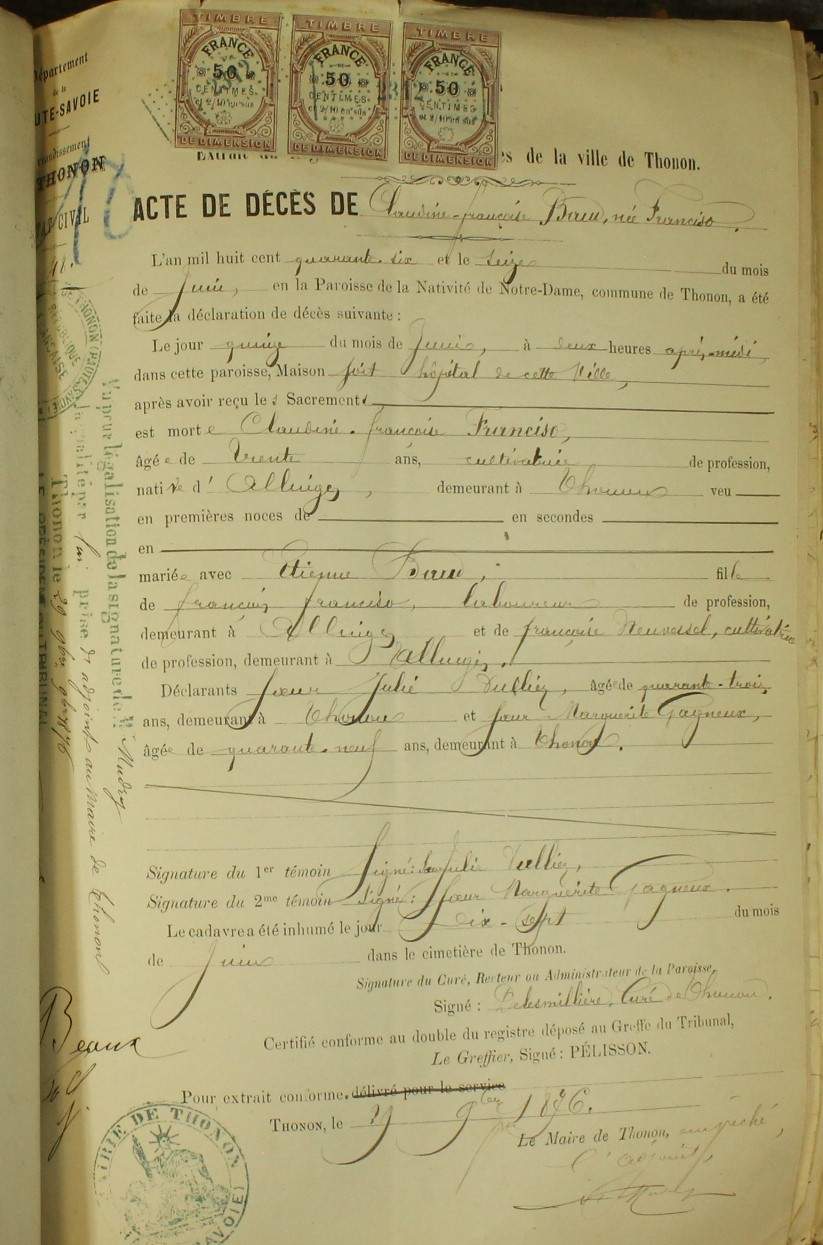 TIMBRE TIMBRE TIMBRE
FRANCE FRANCE FRANCE
50 50 50
CENTIMES CENTIMES CENTIMES
DE DIMENSION DE DIMENSION DE DIMENSION
Département
de la
UTE-SAVOIE
THONON
CIVIL
Extrait de la ville de Thonon.
ACTE DE DÉCÈS DE Claudine-françoise Baud, née Franciso.
L'an mil huit cent quarante-six et le seize du mois
de Juin, en la Paroisse de la Nativité de Notre-Dame, commune de Thonon, a été
faite la déclaration de décès suivante :
Le jour quinze du mois de Juin, à deux heures après-midi,
dans cette paroisse, Maison hôpital de cette Ville,
après avoir reçu les Sacrements
est morte Claudine-françoise Franciso,
âgée de trente ans, cultivatrice de profession,
native d'Allinges, demeurant à Thonon veu
en premières noces de en secondes
en
mariée avec Etienne Baud, fille
de françois franciso, laboureur de profession,
demeurant à Allinges et de françoise Neuvessel, cultivatrice
de profession, demeurant à Allinges.
Déclarants sœur Julie Vulliez, âgée de quarante-trois
ans, demeurant à Thonon et sœur Marguerite Gagneux,
âgée de quarante-neuf ans, demeurant à Thonon.
Signature du 1er témoin Signé: Sr Julie Vulliez,
Signature du 2me témoin Signé: Sœur Marguerite Gagneux.
Le cadavre a été inhumé le jour dix-sept du mois
de Juin dans le cimetière de Thonon.
Signature du Curé, Recteur ou Administrateur de la Paroisse,
Signé : Delesmillière, Curé de Thonon.
Certifié conforme au double du registre déposé au Greffe du Tribunal,
Le Greffier, Signé : PÉLISSON.
Pour extrait conforme, délivré pour le service
THONON, le 9bre 1876.
Le Maire de Thonon, empêché,
L'adjoint,
Vu pour légalisation de la signature de M Mudry
prise de adjoint au Maire de Thonon
Thonon, le 29 9bre 1876
Beaux
MAIRIE DE THONON
SAVOIE)